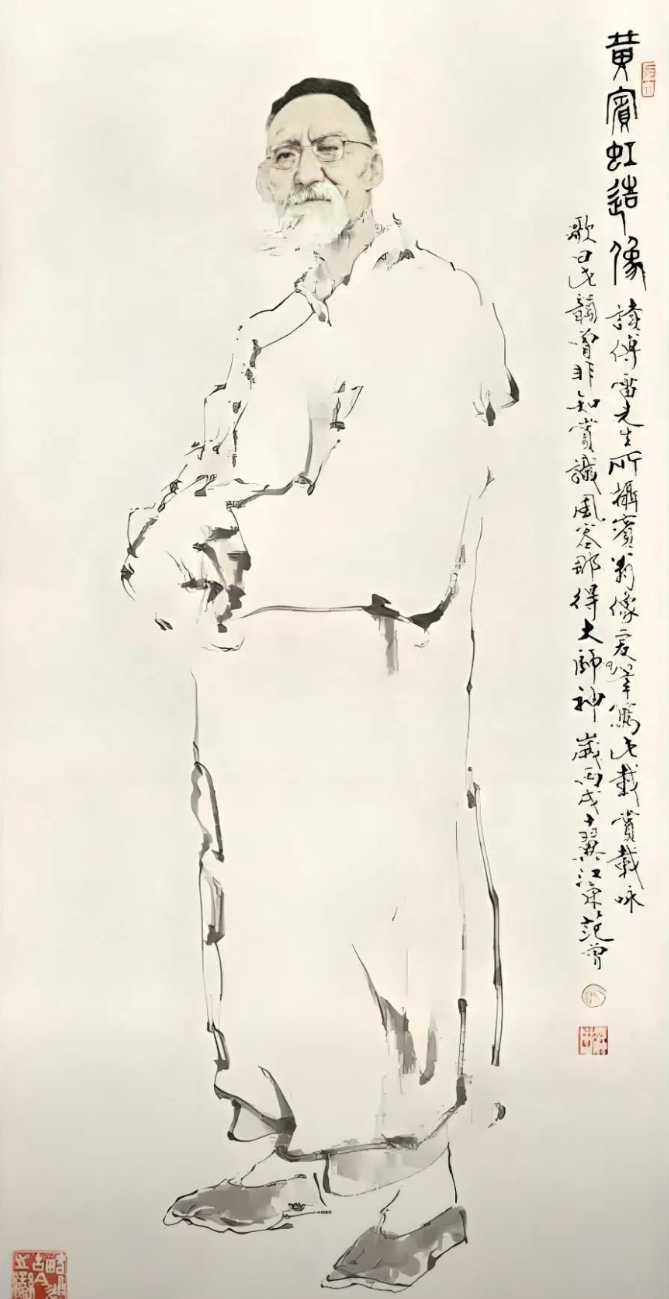 黄賓虹造像
讀傅雷先生所攝賓翁像爰寫此載賞載咏
歌曰非知賞識風容那得大師神歲丙戌十翼江東范曾